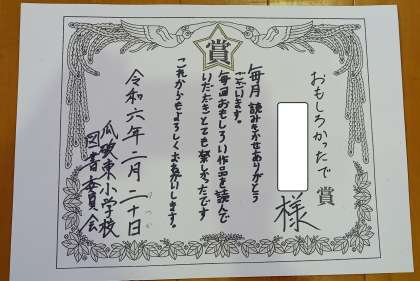 賞
おもしろかったで賞
様
毎月読みきかせありがとう
ございます。
毎回おもしろい作品を読んで
いただきとても楽しかったです
これからもよろしくおねがいします。
令和六年二月二十日
瓜破東小学校
図書委員会